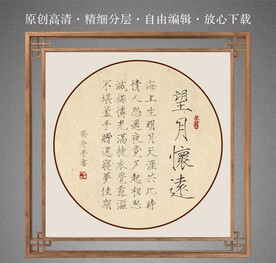 原创高清·精细分层·自由编辑·放心下载
望月懷遠
海上生明月天涯共此時
情人怨遙夜竟夕起相思
滅燭憐光滿披衣覺露滋
不堪盈手贈還寢夢佳期